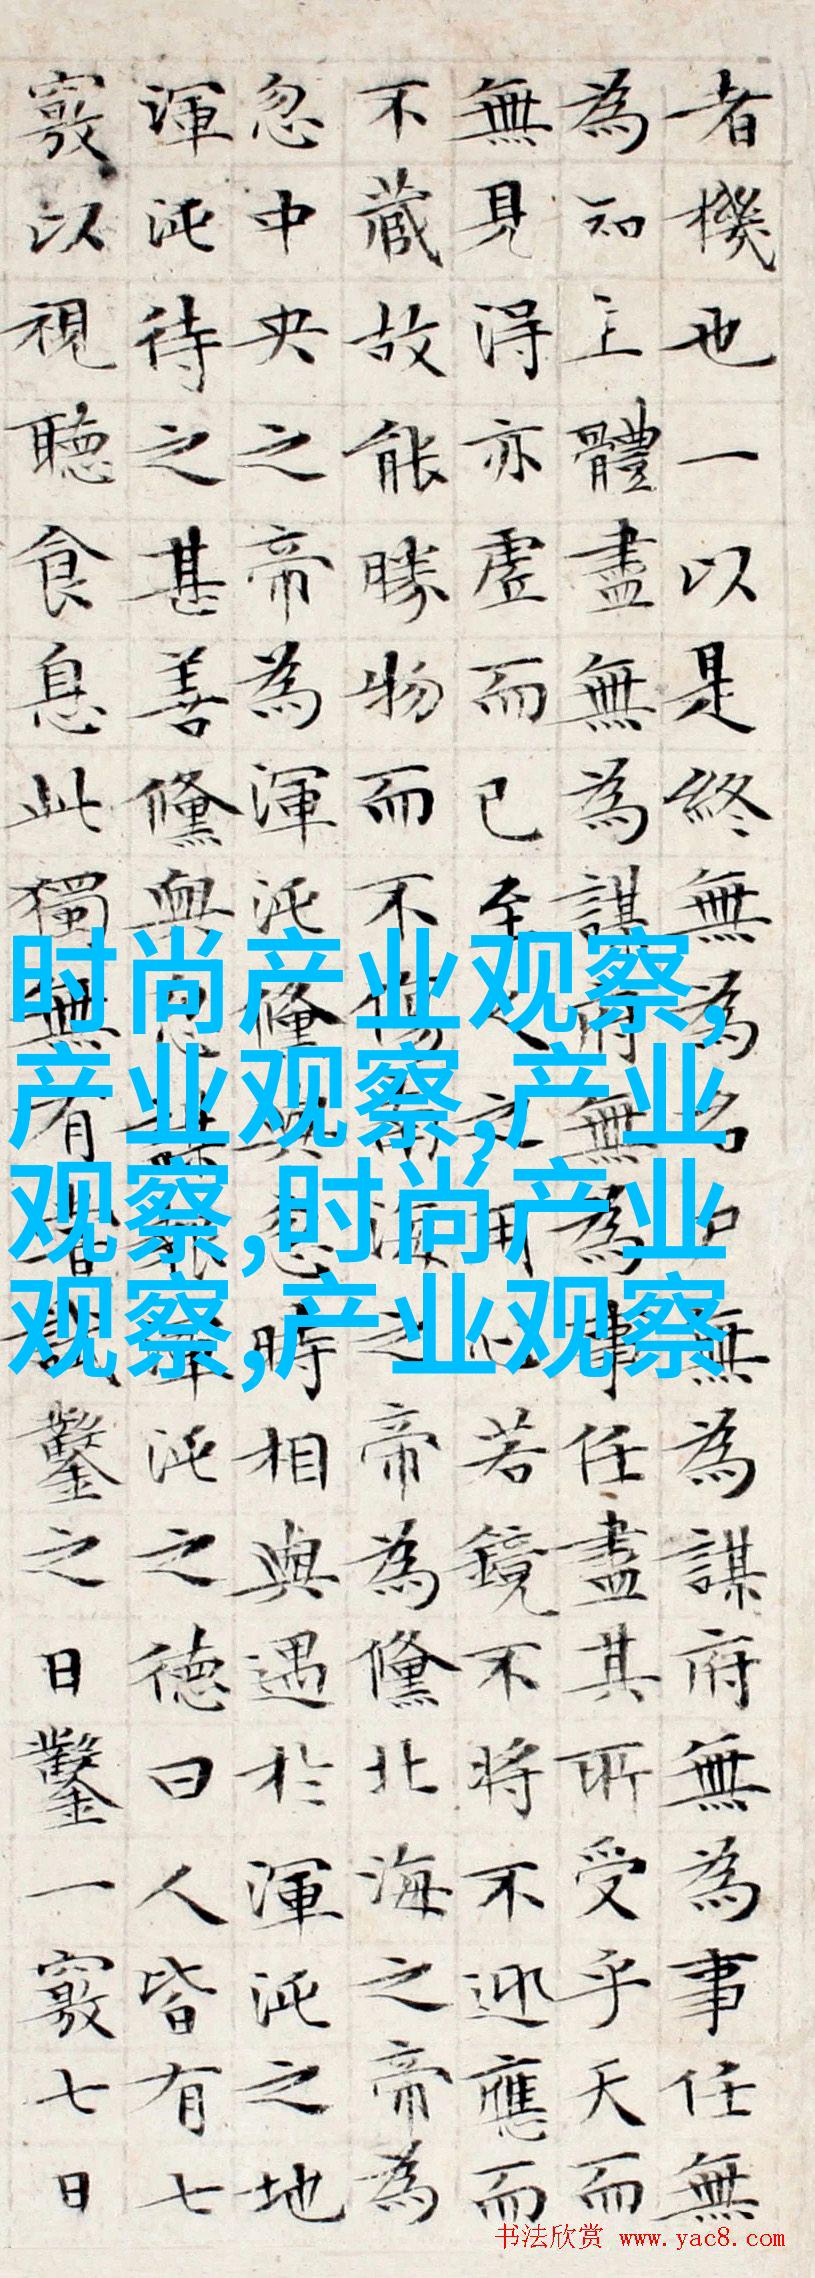 者機也一以是終無為名尸無為謀府無為事任無
為知主體盡無為謀府無為事任盡其所受乎天而
無見得亦虛而已至人之用心若鏡不將不迎應而
不藏故能勝物而不傷南海之帝為儵北海之帝為
忽中央之帝為渾沌儵與忽時相與遇於渾沌之地
渾沌待之甚善儵與忽謀報渾沌之德曰人皆有七
竅以視聽食息此獨無有嘗試鑿之日鑿一竅七日
时尚产业观察,
产业观察,产业
观察,时尚产业
观察,产业观察
书法欣赏 www.yac8.com